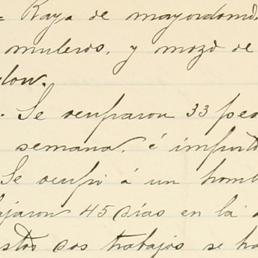 = Raya de mayordomo
muleros, y mozo de
low.
. Se ocuparon 33 peo
semana, é import
Se ocupó á un homb
ajaron 45 días en la
stos dos trabajos se ha